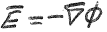 E̅ = -∇̅ϕ